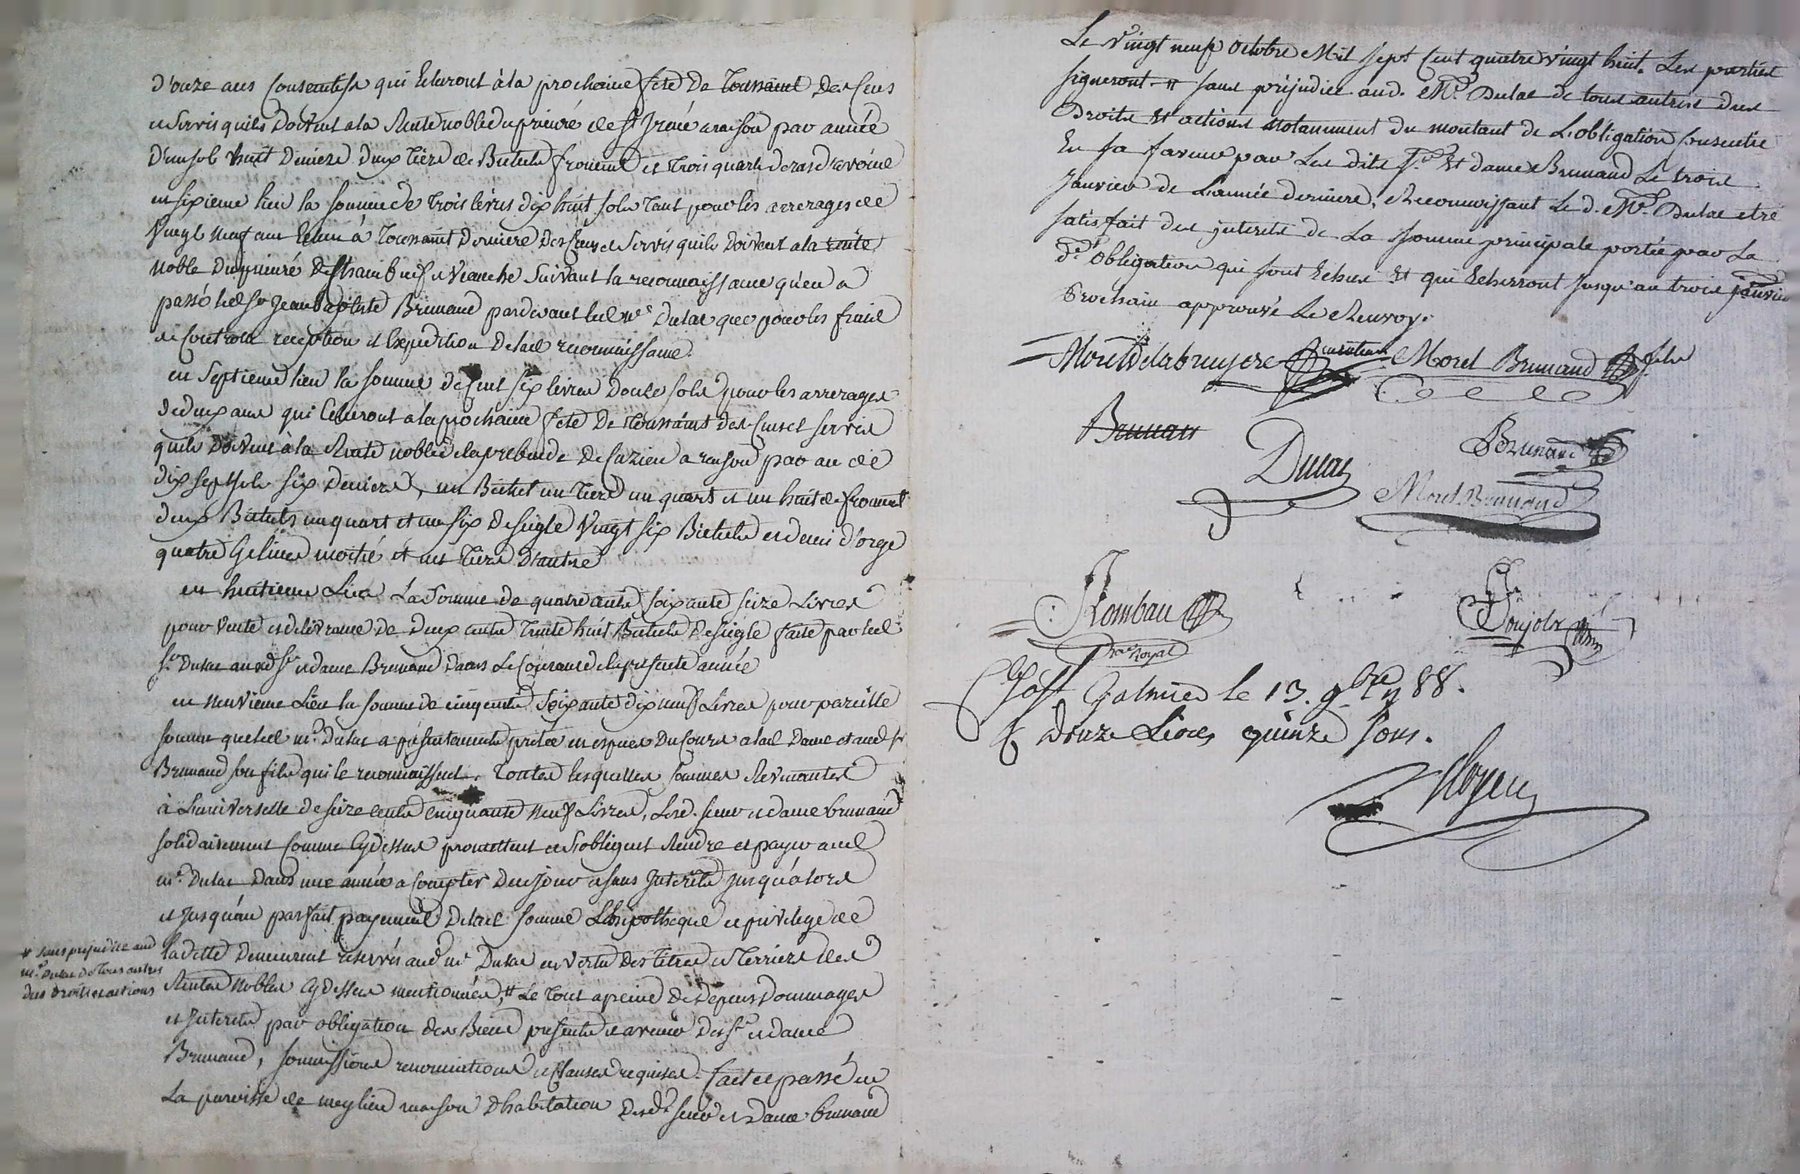 d'onze ans Consecutifs qui Echeront à la prochaine fete De Toussaint Des Cens
et Servis quils Doivent a la Rente noble du prieuré de St Irené a raison par année
D'un sol huit Deniers Deux Tiers de Bichets froment et Trois quarts de ras d'avoine
en sixieme lieu la somme De Trois livres dix huit sols Tant pour les arrerages de
Vingt neuf ans Echeu à Toussaint Derniere Des Cens et Servis quils Doivent a la rente
noble Du prieuré De suivant la reconnaissance qu'en a
passé led Sr Jean Baptiste Brunand pardevant led me Dulac que pour les frais
de Controle reception et Expedition de lad reconnaissance.
en Septieme lieu la somme de Cent six livres Douze sols pour les arrerages
de deux ans qui Echeront a la prochaine fete De Toussaint des Cens et servis
quils Doivent à la Rente noble de la prebende de Cuzieu a raison par an de
dix sept sols six Deniers, un Bichet un Tiers un quart et un huit de froment
deux Bichets un quart et un six De seigle Vingt six Bichets et demi d'orge
quatre Gelines moitié et un Tiers D'autre
en huitieme Lieu La Somme de quatre cents soixante seize Livres
pour Vente et delivrance de Deux cents Trente huit Bichets De seigle faite par led
Sr Dulac auxd Sr et dame Brunand Dans le Courant de la presente année
en neuvieme Lieu la somme de cinq cents soixante dix neuf Livres pour pareille
somme que led mr Dulac a presentement pretée en especes Du Cours a lad Dame et aud Sr
Brunand son fils qui le reconnaissent. Toutes lesquelles sommes Revenantes
à L'universelle de seize cents cinquante neuf Livres, Lesd. sieur et dame brunand
solidairement Comme Cydessus promettent et s'obligent Rendre et payer aud
mr Dulac Dans une année a Compter De ce jour et sans Interets jusqu'alors
et Jusqu'au parfait payement De lad somme L'hipotheque et privilege de
la dette Demeurant reservés aud mr Dulac en vertu Des titres et Terriers des
Rentes nobles Cydessus mentionnées, # Le Tout a peine de Depens Dommages
# sans prejudice aud
mr. Dulac de Tous autres
dus droits et actions
et Interets par obligation des Biens presents et avenir Des Sr et dame
Brunand, soumissions renonciations et Clauses requises. fait et passé en
La paroisse de meylieu maison D'habitation Desd sieur et Dame brunand
Le Vingt neuf octobre Mil Sept Cent quatre vingt huit. Les parties
signeront # sans préjudice aud. Mr. Dulac de tous autres dus
Droits Et actions Notamment du montant de L'obligation Consentie
En sa faveur par Les dits Sr Et dames Brunand Le trois
Janvier de L'année derniere, Reconnoissant Le d. Mr. Dulac etre
satisfait des interets de La somme principale portée par La
de. Obligation qui sont Echus Et qui Echerront jusqu'au trois janvier
Prochain approuvé Le Renvoy.
Morel Brunand fils
Brunan
Dulac
Brunand
Morel Brunand
Rombau
Nre Royal
Poujolx
St Galmier le 13. 9bre 1788.
R Douze Livres quinze sous.